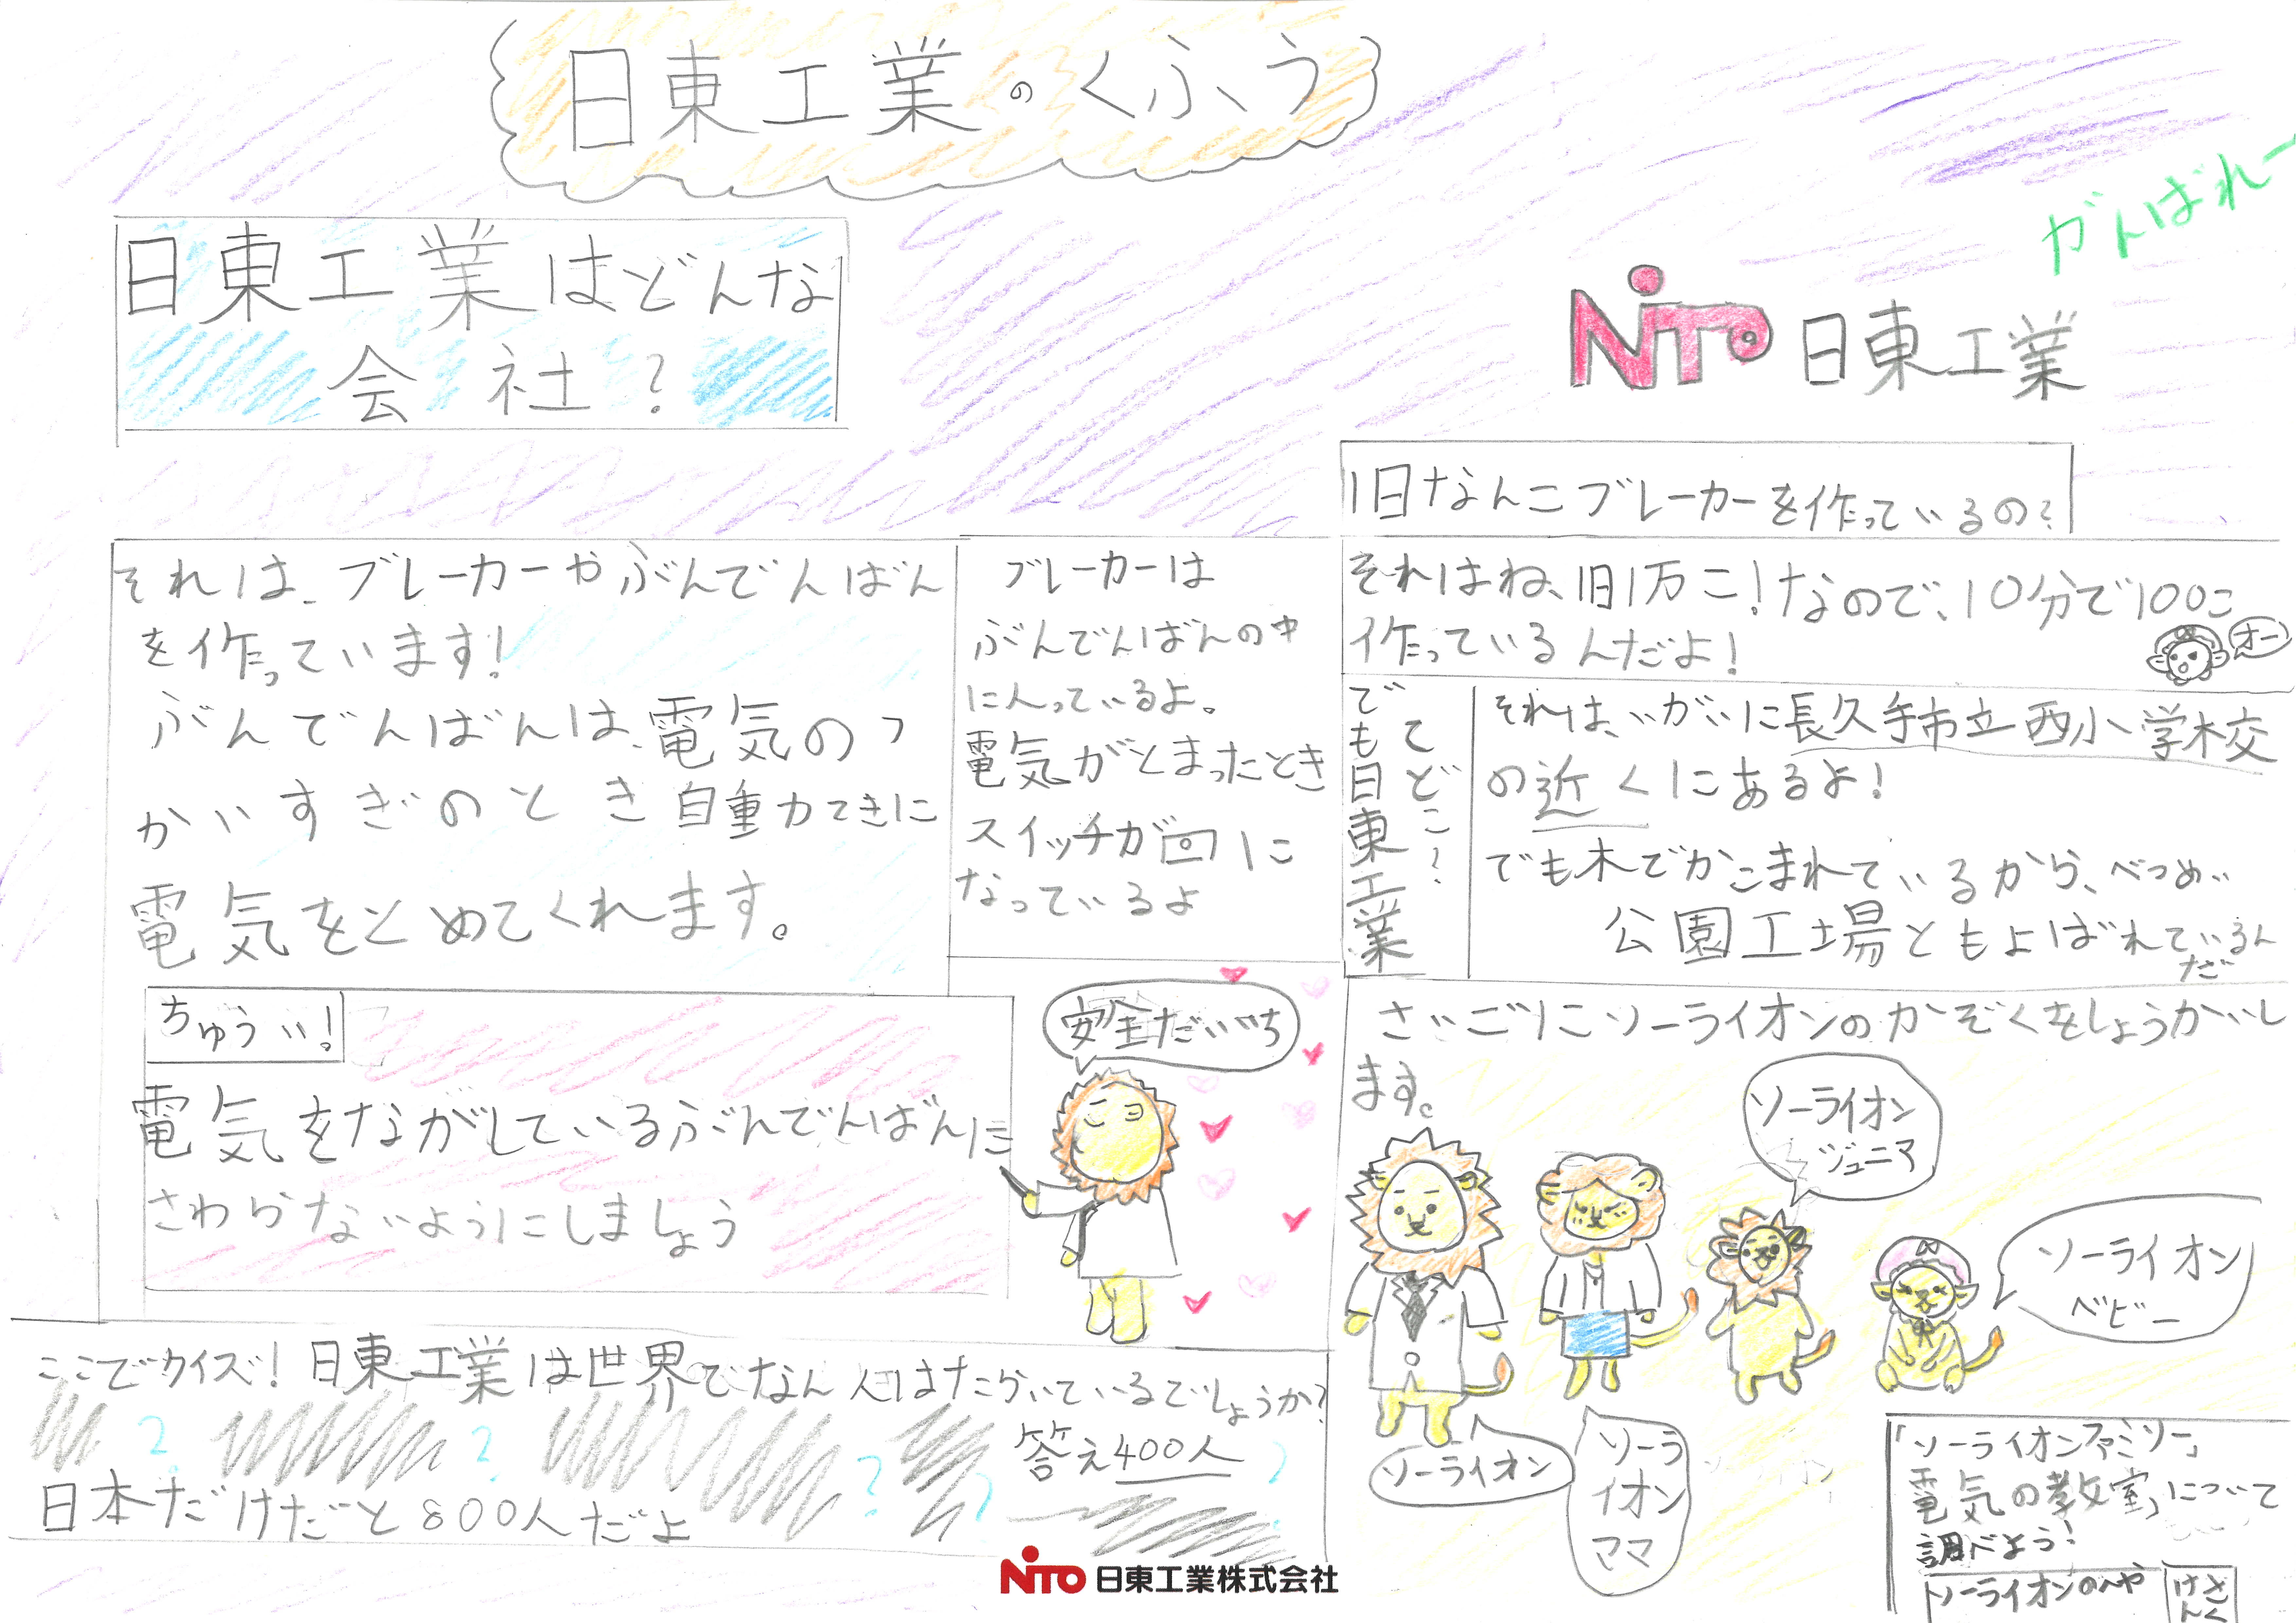 日東工業のくふう
がんばれー
日東工業はどんな
会社?
NITO 日東工業
それは、ブレーカーやぶんでんばん
を作っています!
ぶんでんばんは、電気のつ
かいすぎのとき自動てきに
電気をとめてくれます。
ブレーカーは
ぶんでんばんの中
に入っているよ。
電気がとまったとき
スイッチが回に
なっているよ
ちゅうい!
電気をながしているぶんでんばんに
さわらないようにしましょう
安全だいいち
ここでクイズ!日東工業は世界でなん人はたらいているでしょうか?
答え400人
日本だけだと800人だよ
1日なんこブレーカーを作っているの?
それはね、1日1万こ!なので、10分で100こ
作っているんだよ!
オー
でも日東工業
てどこ?
それは、いがいに長久手市立西小学校
の近くにあるよ!
でも木でかこまれているから、べつめい
公園工場ともよばれているん
だ
さいごにソーライオンのかぞくをしょうかいし
ます。
ソーライオン
ジュニア
ソーライオン
ベビー
ソーライオン
ソーラ
イオン
ママ
「ソーライオンファミリー」
電気の教室」について
調べよう!
ソーライオンのへや
けんさく
NITO 日東工業株式会社